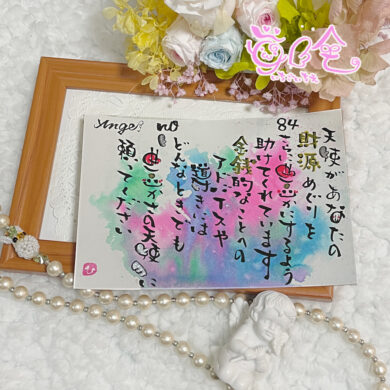 Angel no 84
天使があなたの
財源めぐりを
さらに豊かにするよう
助けてくれています
金銭的なことへの
アドバイスや
導きには
どんなときでも
豊かさの天使に
願ってください